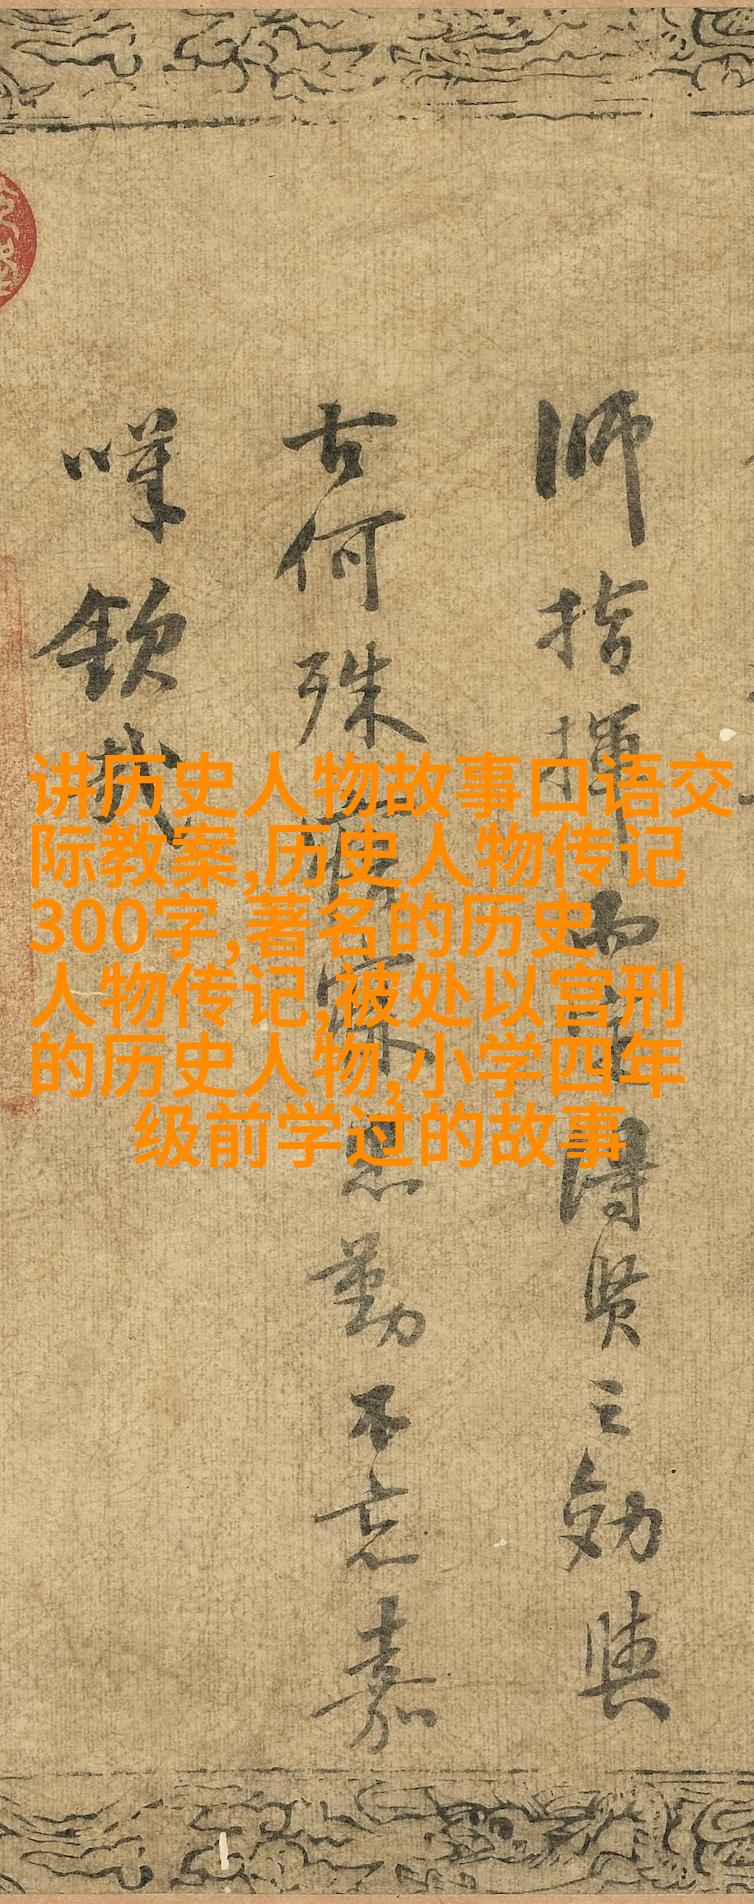 师指揮而定得贤之効與
古何殊寤寐忠勤不忘嘉
嘆欽哉
讲历史人物故事口语交
际教案,历史人物传记
300字,著名的历史
人物传记,被处以宫刑
的历史人物,小学四年
级前学过的故事